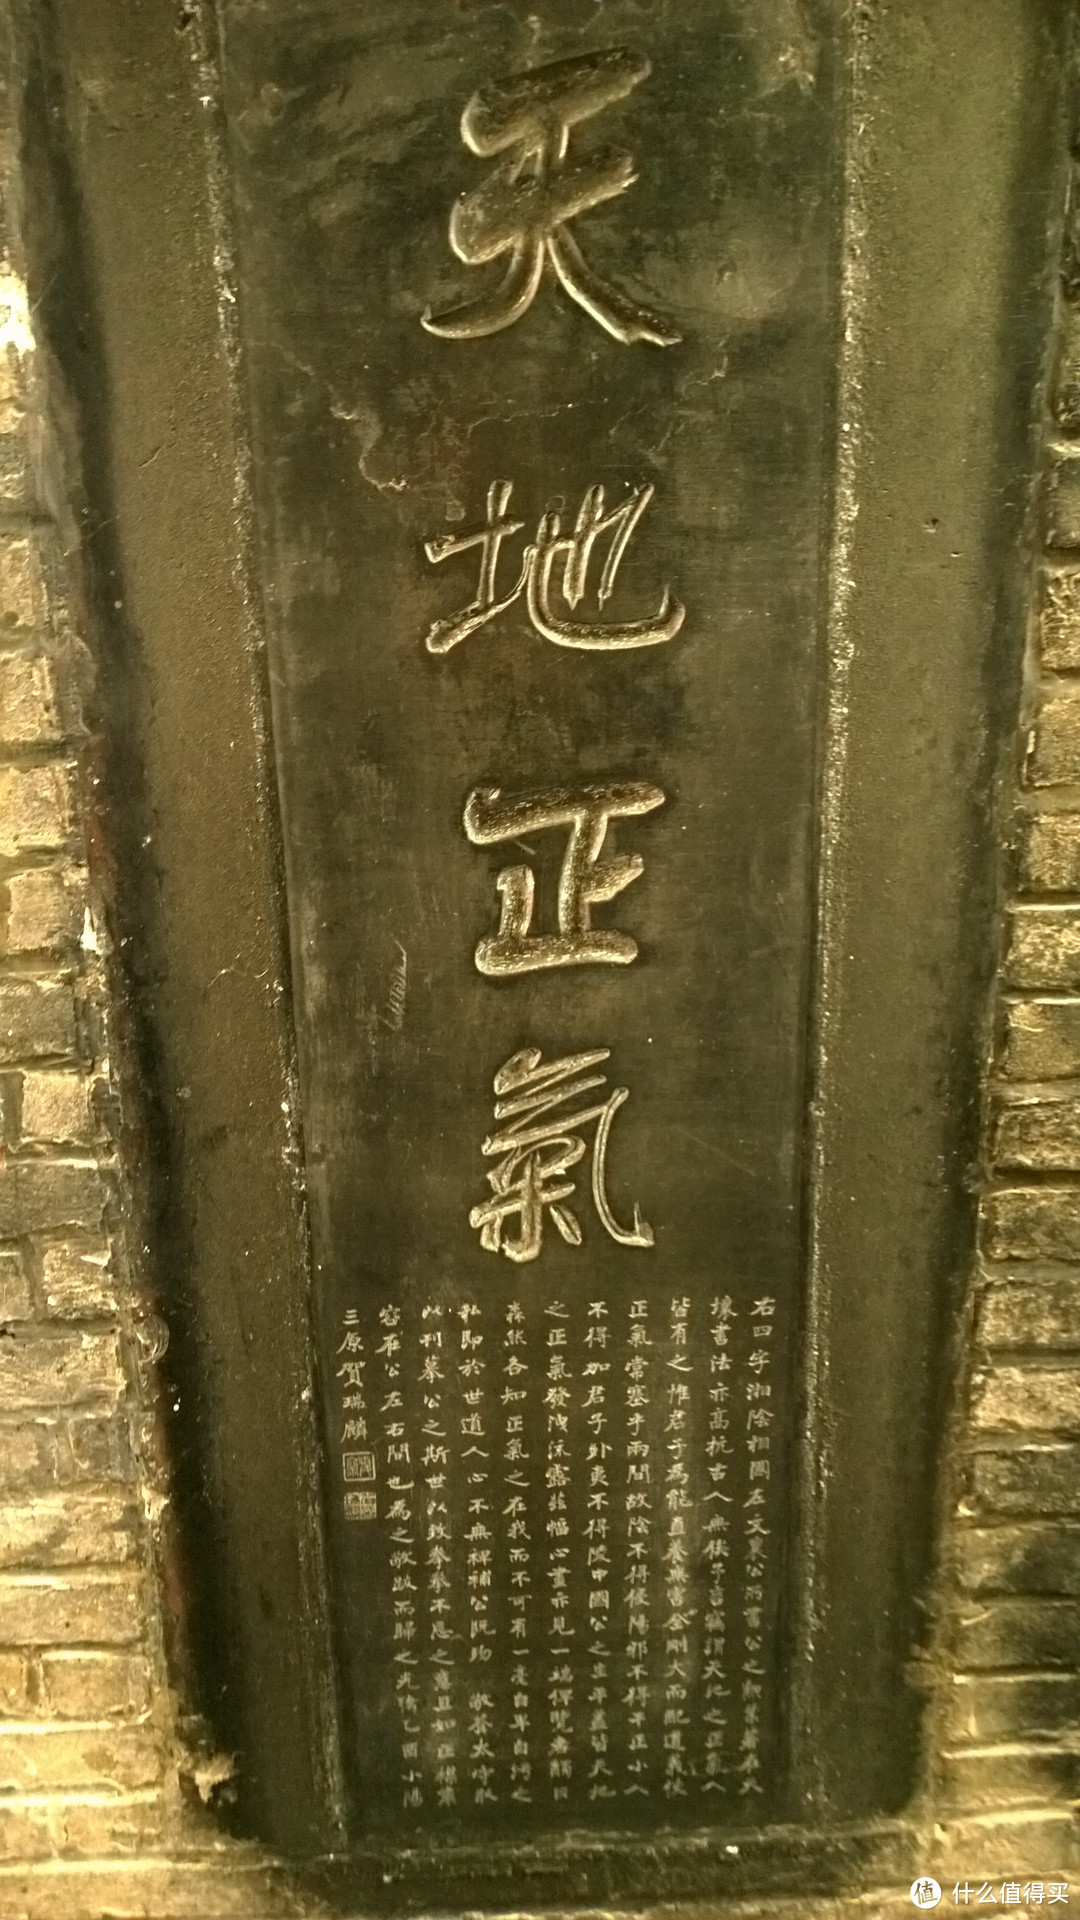 天地正氣
右四字湘陰相國左文襄公所書公之勲業著在天
壤書法亦高抗古人無俟予言竊謂天地之正氣人
皆有之惟君子為能直養無害金剛大而配道義使
正氣常塞乎兩間故陰不得侵陽邪不得干正小人
不得加君子外夷不得陵中國公之生平蓋皆天地
之正氣發洩流露玆幅心畫亦見一端俾覽者觸目
森然各知正氣之在我而不可有一毫自卑自污之
私即於世道人心不無裨補公既歿 敬菴太守取
以刊摹公之斯世以致拳拳不忘之意且如正襟肅
容在公左右間也為之敬跋而歸之光緒乙酉小陽
三原賀瑞麟
值 什么值得买